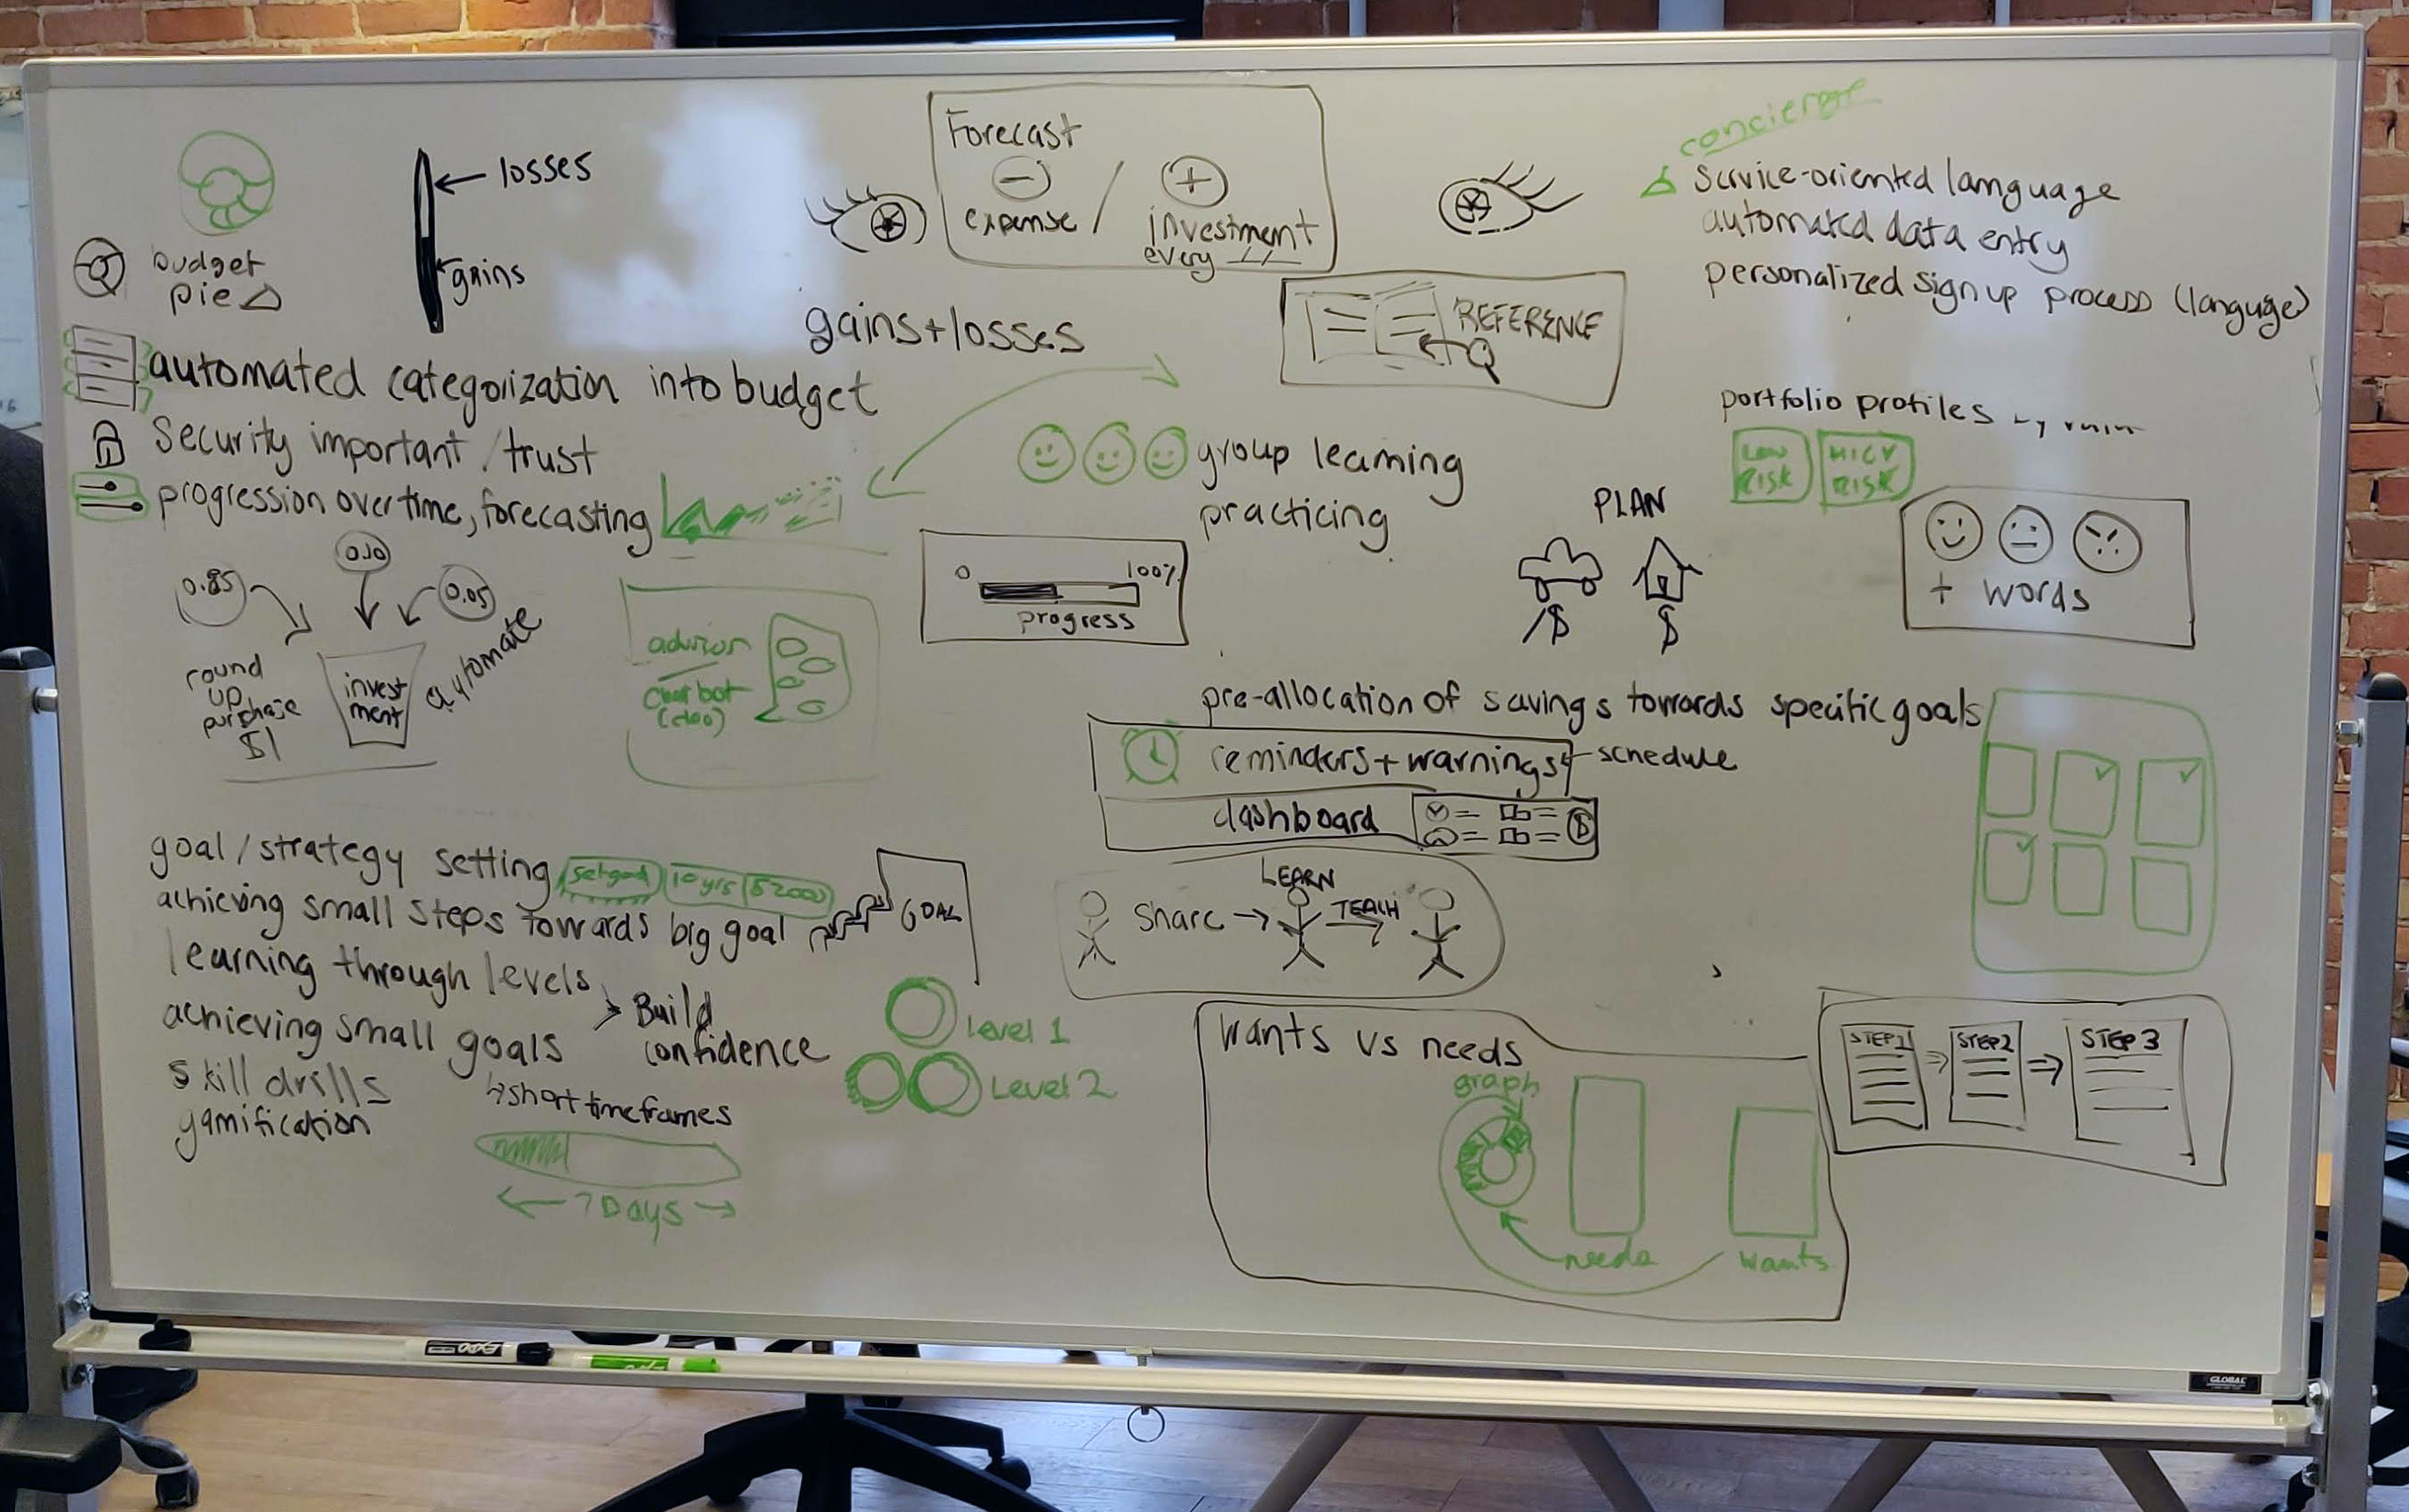 concierge
Service-oriented language
automated data entry
personalized sign up process (languge)
Forecast
expense / investment
every
← losses
gains
budget
pie
gains+losses
REFERENCE
automated categorization into budget
Security important / trust
progression over time, forecasting
portfolio profiles
LOW
RISK
HIGH
RISK
group learning
practicing
PLAN
$
$
+ words
0
100%
progress
0.85
0.10
0.05
round
up
purchase
$1
invest
ment
automate
advisor
Chat bot
pre-allocation of savings towards specific goals
reminders + warnings
schedule
dashboard
$
goal/strategy setting
set goal
10 yrs
$2000
achieving small steps towards big goal
GOAL
learning through levels
achieving small goals
Build
confidence
skill drills
gamification
short timeframes
← 7 Days →
Level 1
Level 2
Share →
LEARN
TEACH
Wants vs needs
graph
needs
wants
STEP 1
STEP 2
STEP 3
EXPO
EXPO
GLOBAL